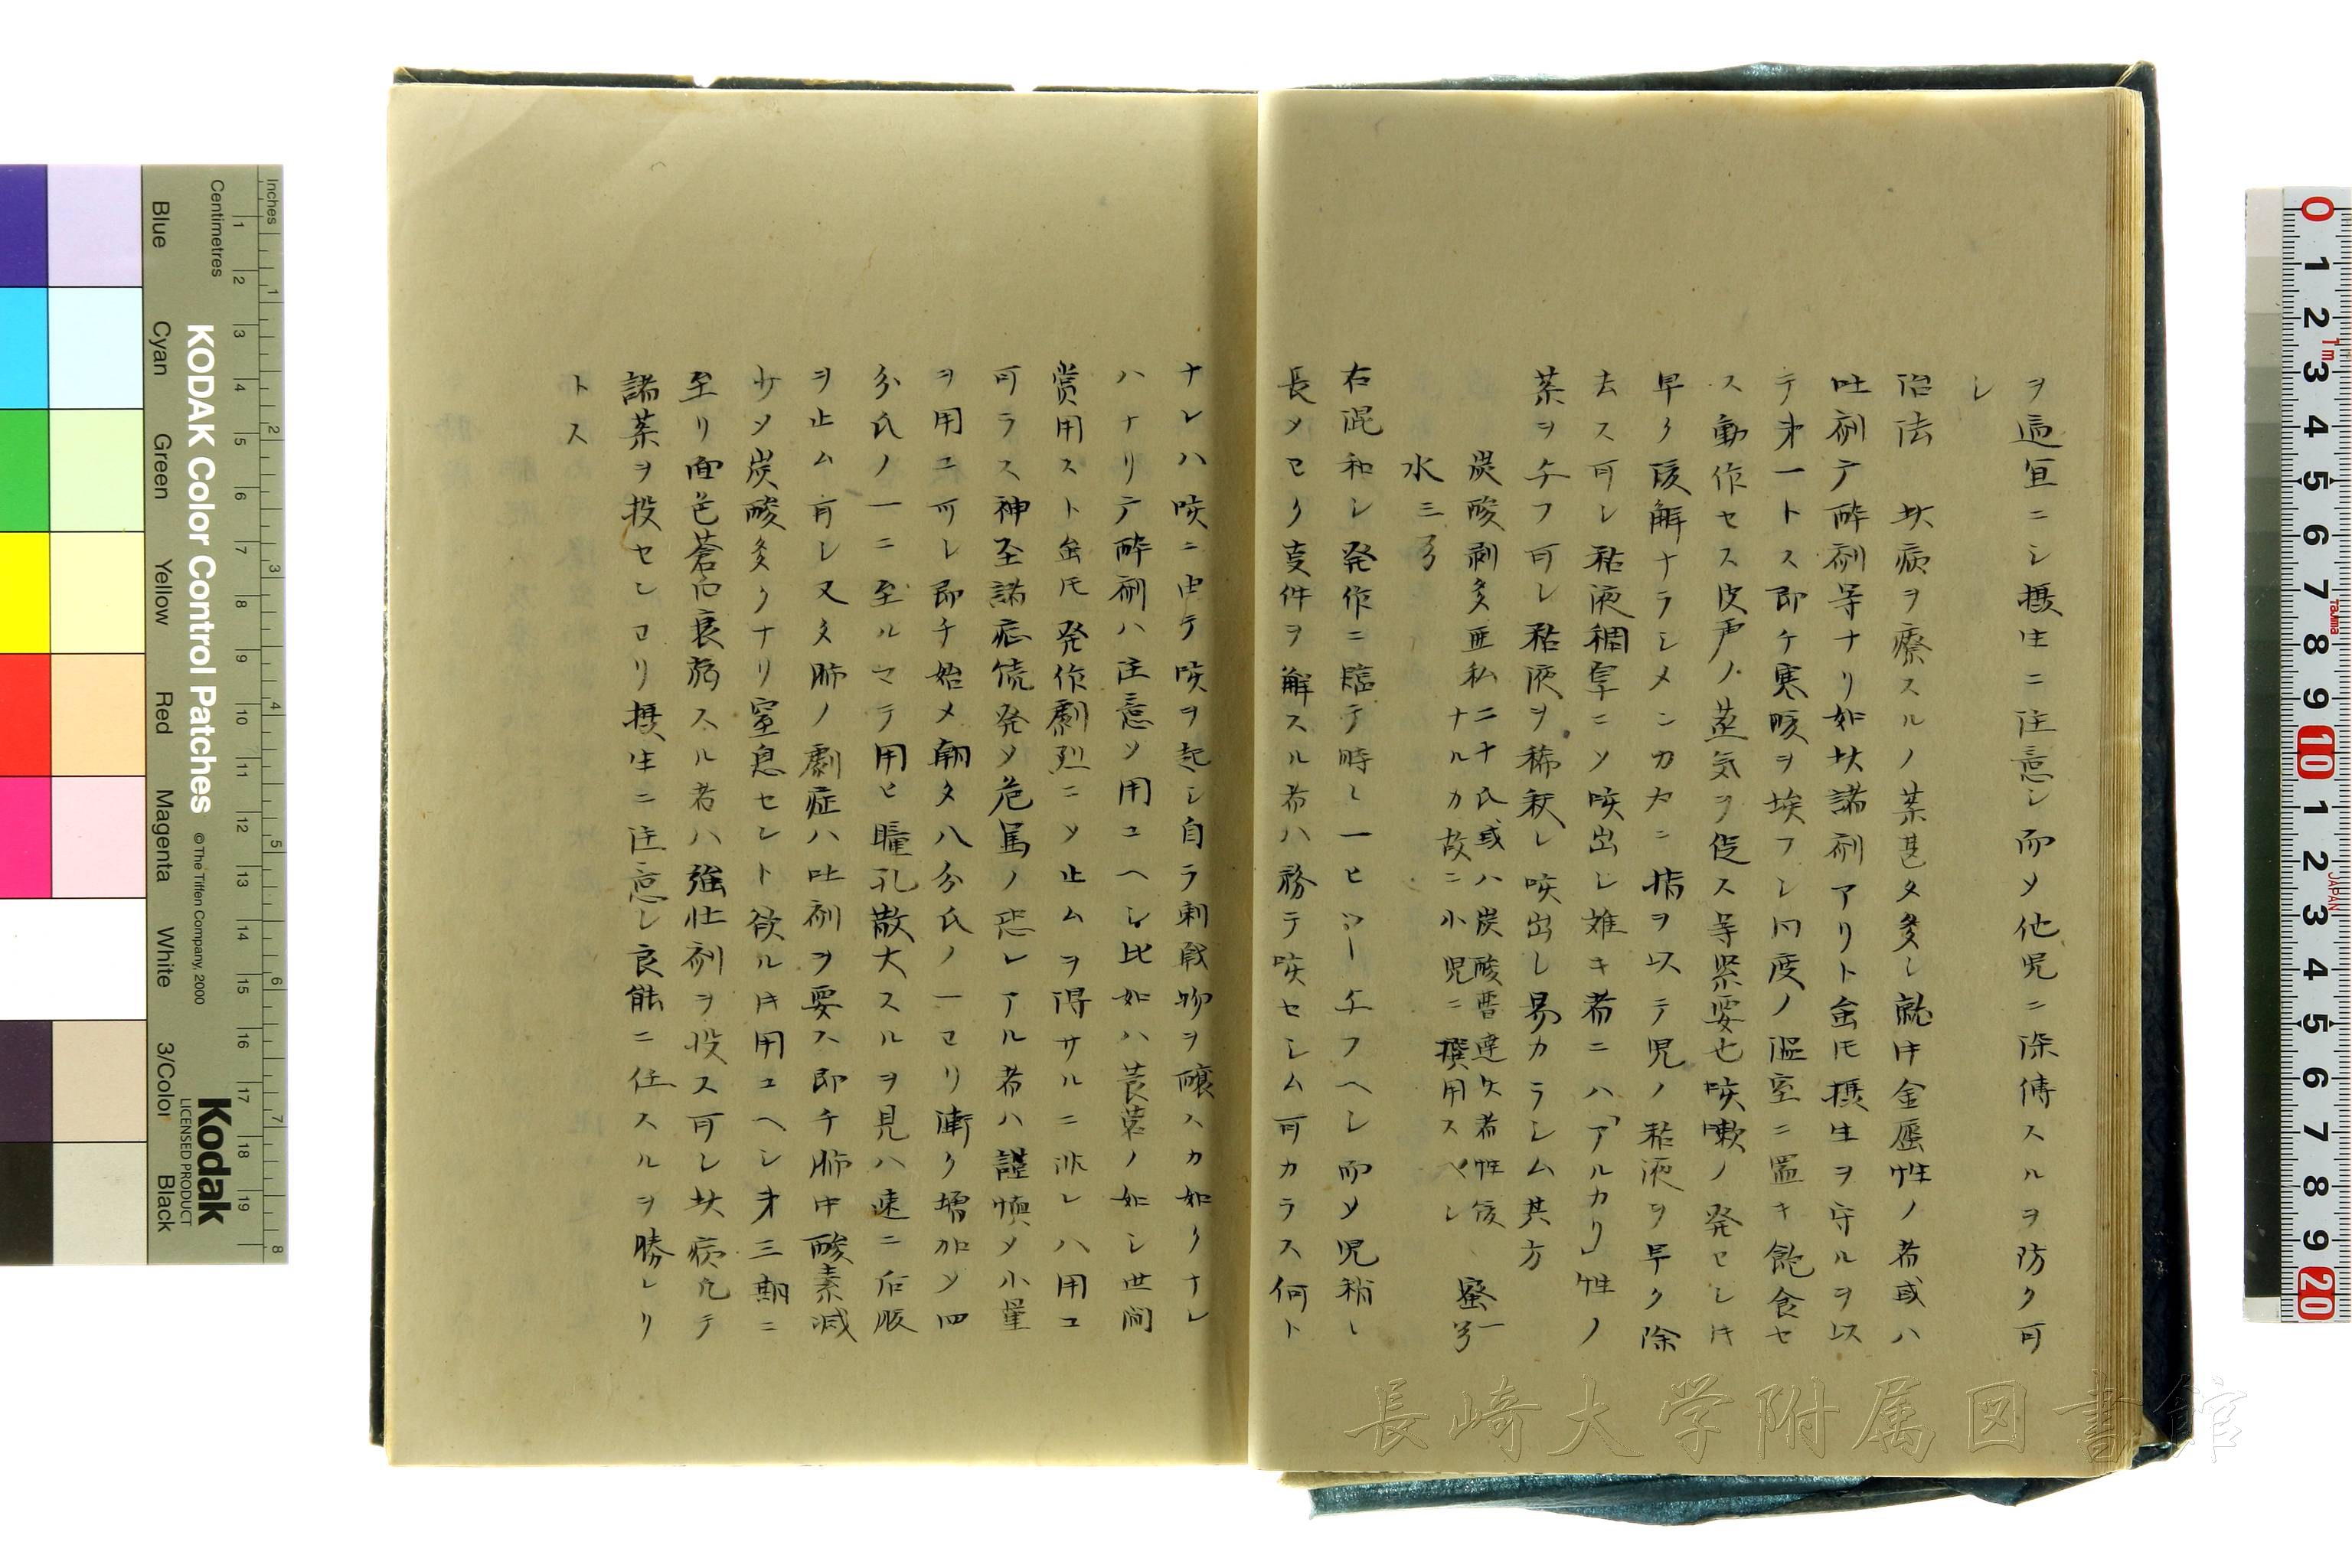 ヲ適宜ニシ摂生ニ注意シ而〆他児ニ深傳スルヲ防ク可
シ
治法　此病ヲ療スルノ薬甚タ多シ就中金属性ノ者或ハ
吐剤テ酔剤等ナリ如此諸剤アリト虽𪜈摂生ヲ守ルヲ以
テ第一トス即チ寒暖ヲ埃フシ同度ノ温室ニ置キ飽食セ
ス動作セス皮声ノ蒸気ヲ促ス等緊要也咳嗽ノ発セシ𪜈
早ク緩解ナラシメンカ為ニ指ヲ以テ児ノ粘液ヲ早ク除
去ス可シ粘液稠厚ニ〆咳出シ難キ者ニハ「アルカリ」性ノ
薬ヲ与フ可シ粘液ヲ稀釈シ咳出シ易カラシム其方
炭酸剥多亜私二十氏或ハ炭酸曹達矢者性緩
ナルカ故ニ小児ニ撰用スベシ　蜜一㕮
水三㕮
右混和シ発作ニ臨テ時々一ヒツー与フヘシ而〆児稍々
長〆ヨク事件ヲ解スル者ハ務テ咳セシム可カラス何ト
ナレハ咳ニ由テ咳ヲ起シ自ラ刺戟物ヲ醸スカ如クナレ
ハナリテ酔剤ハ注意〆用ユヘシ比如ハ莨菪ノ如シ世間
賞用スト虽𪜈発作劇烈ニ〆止ムヲ得サルニ非レハ用ユ
可ラス神至諸症続発〆危篤ノ恐レアル者ハ謹慎〆小量
ヲ用ユ可シ即チ始メ朝夕八分氏ノ一ヨリ漸ク増加〆四
分氏ノ一ニ至ルマテ用ヒ瞳孔散大スルヲ見ハ速ニ后服
ヲ止ム可シ又タ肺ノ劇症ハ吐剤ヲ要ス即チ肺中酸素減
少〆炭酸多クナリ窒息セント欲ル𪜈用ユヘシ第三期ニ
至リ面色蒼白衰弱スル者ハ強壮剤ヲ投ス可シ此病凡テ
諸薬ヲ投センヨリ摂生ニ注意シ良能ニ任スルヲ勝レリ
トス
KODAK Color Control Patches
© The Tiffen Company, 2000
Kodak
LICENSED PRODUCT
Inches
Centimetres
Blue
Cyan
Green
Yellow
Red
Magenta
White
3/Color
Black
長崎大学附属図書館